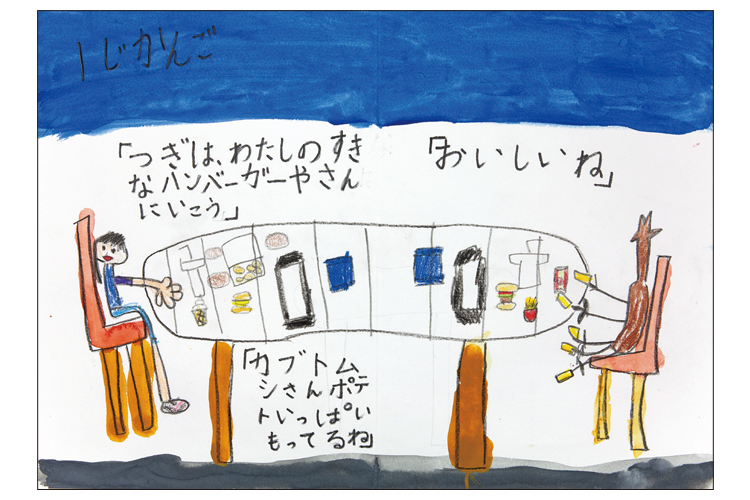 1じかんご
「つぎは、わたしのすき
なハンバーガーやさん
にいこう」
「おいしいね」
「カブトム
シさんポテ
トいっぱい
もってるね」